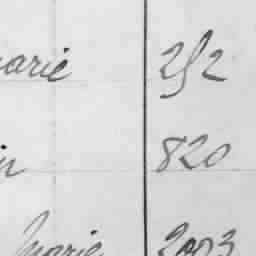 arie 252
in 820
Marie 2003